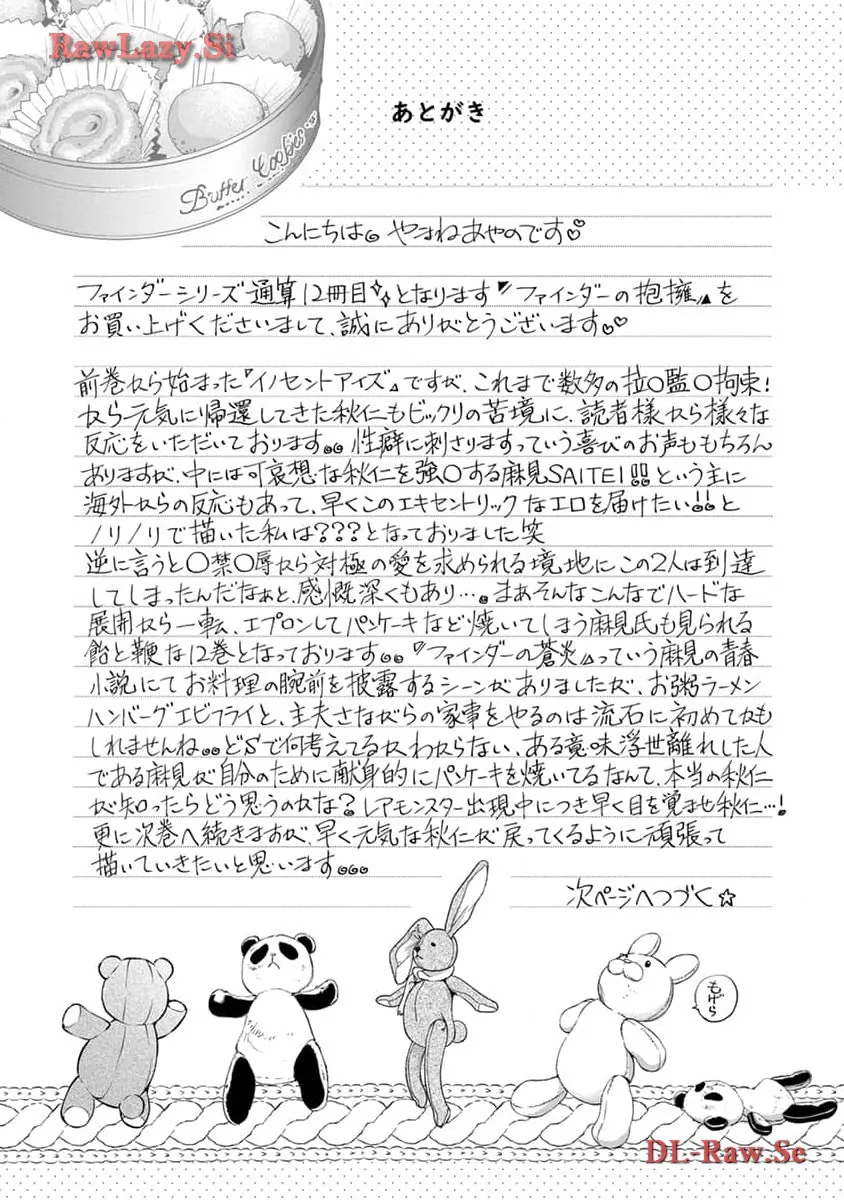 RawLazy.Si
あとがき
Butter Cookies
こんにちは。やまねあやのです♡
ファインダーシリーズ通算12冊目✨となります『ファインダーの抱擁』を
お買い上げくださいまして、誠にありがとうございます。♡
前巻から始まった『イノセントアイズ』ですが、これまで数多の拉〇監〇拘束!
から元気に帰還してきた秋仁もビックリの苦境に、読者様から様々な
反応をいただいております。。性癖に刺さりますっていう喜びのお声ももちろん
ありますが、中には可哀想な秋仁を強〇する麻見SAITEI!!という主に
海外からの反応もあって、早くこのエキセントリックなエロを届けたい!!と
ノリノリで描いた私は???となっておりました笑
逆に言うと〇禁〇辱から対極の愛を求められる境地にこの2人は到達
してしまったんだなぁと、感慨深くもあり…。まぁそんなこんなでハードな
展開から一転、エプロンしてパンケーキなど焼いてしまう麻見氏も見られる
飴と鞭な12巻となっております。。『ファインダーの蒼炎』っていう麻見の青春
小説にてお料理の腕前を披露するシーンがありましたが、お粥ラーメン
ハンバーグエビフライと、主夫さながらの家事をやるのは流石に初めてかも
しれませんね。。どSで何考えてるかわからない、ある意味浮世離れした人
である麻見が自分のために献身的にパンケーキを焼いてるなんて、本当の秋仁
が知ったらどう思うのかな?レアモンスター出現中につき早く目を覚ませ秋仁…!
更に次巻へ続きますが、早く元気な秋仁が戻ってくるように頑張って
描いていきたいと思います。。。
次ページへつづく☆
もげら
DL-Raw.Se